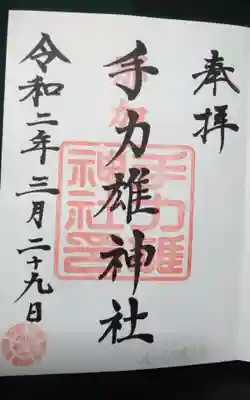 奉拝
手力雄神社
手力雄
神社印
令和二年三月二十九日